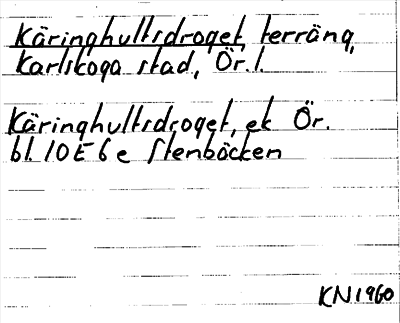 Käringhultsdroget, terräng,
Karlskoga stad, Ör. l.
Käringhultsdroget, ek Ör.
bl. 10 E 6 e Stenbäcken
KN 1960